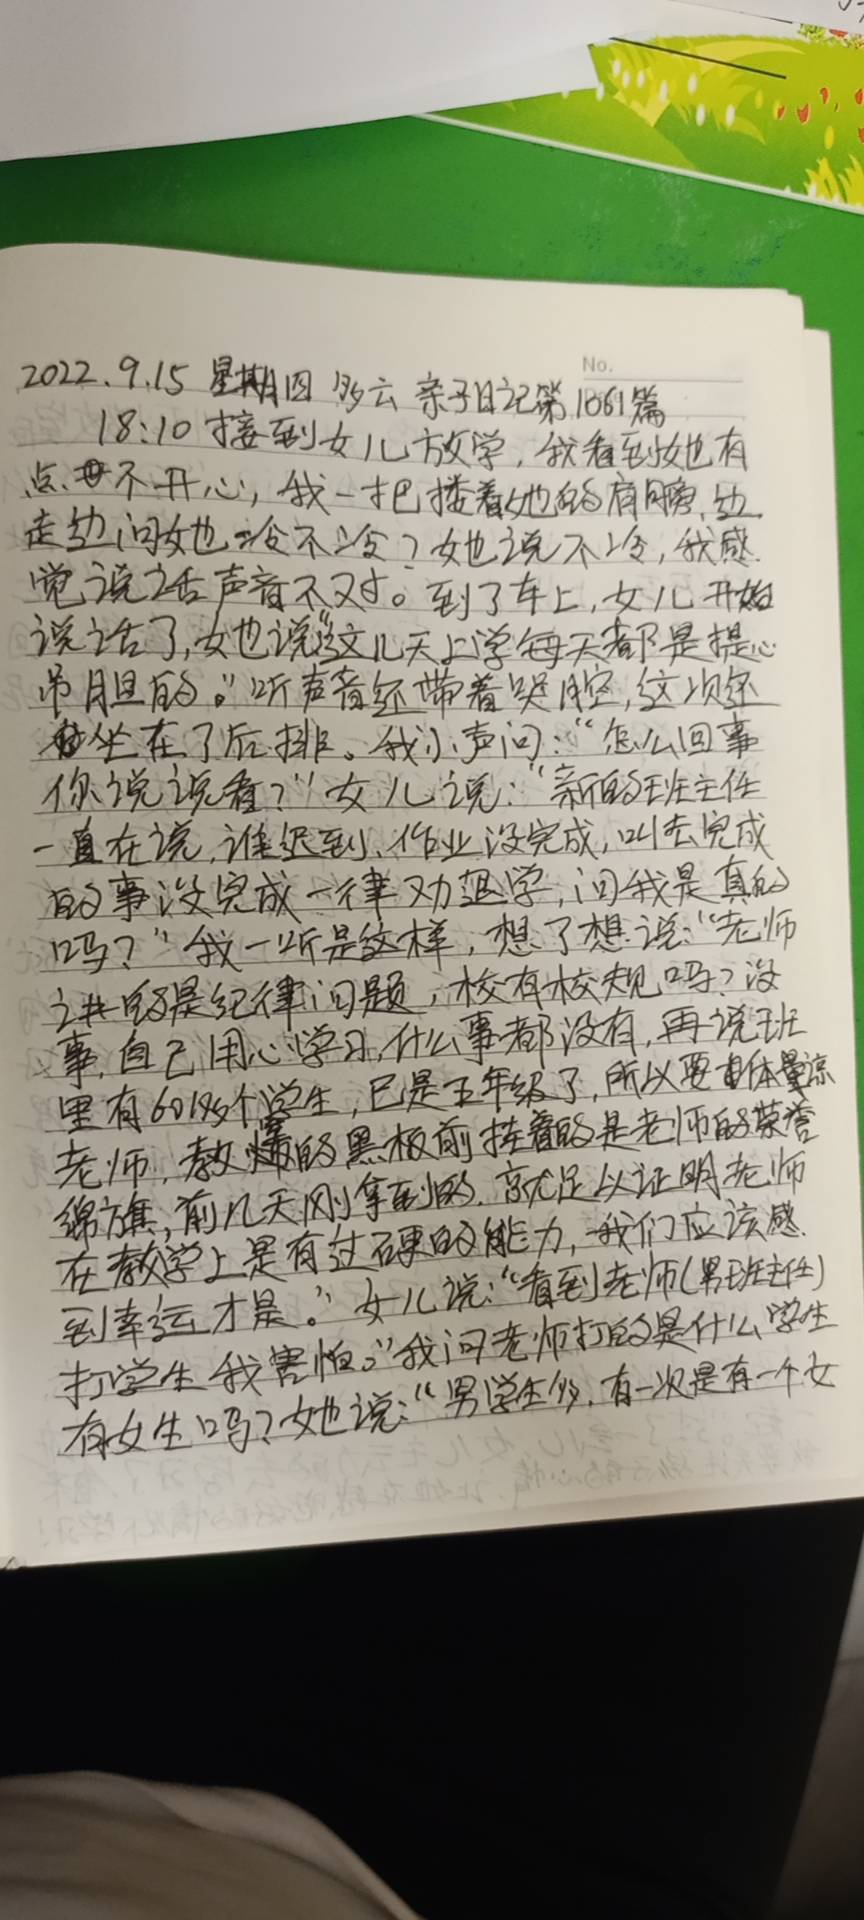 No.
2022.9.15 星期四 多云 亲子日记第1061篇
18:10接到女儿放学，我看到她有
点不开心，我一把搂着她的肩膀，边
走边问她冷不冷？她说不冷，我感
觉说话声音不对。到了车上，女儿开始
说话了，她说“这几天上学每天都是提心
吊胆的。”听声音还带着哭腔，这次还
坐在了后排。我小声问：“怎么回事
你说说看？”女儿说：“新的班主任
一直在说，谁迟到、作业没完成，叫去完成
的事没完成一律劝退学，问我是真的
吗？”我一听是这样，想了想说：“老师
讲的是纪律问题，校有校规吗？没
事，自己用心学习，什么事都没有，再说班
里有60多个学生，已是五年级了，所以要体量谅
老师，教的黑板前挂着的是老师的荣誉
绵旗，前几天刚拿到的，就足以证明老师
在教学上是有过硬的能力，我们应该感
到幸运才是。”女儿说：“看到老师(男班主任)
打学生我害怕。”我问老师打的是什么学生
有女生吗？她说：“男学生多，有一次是有一个女